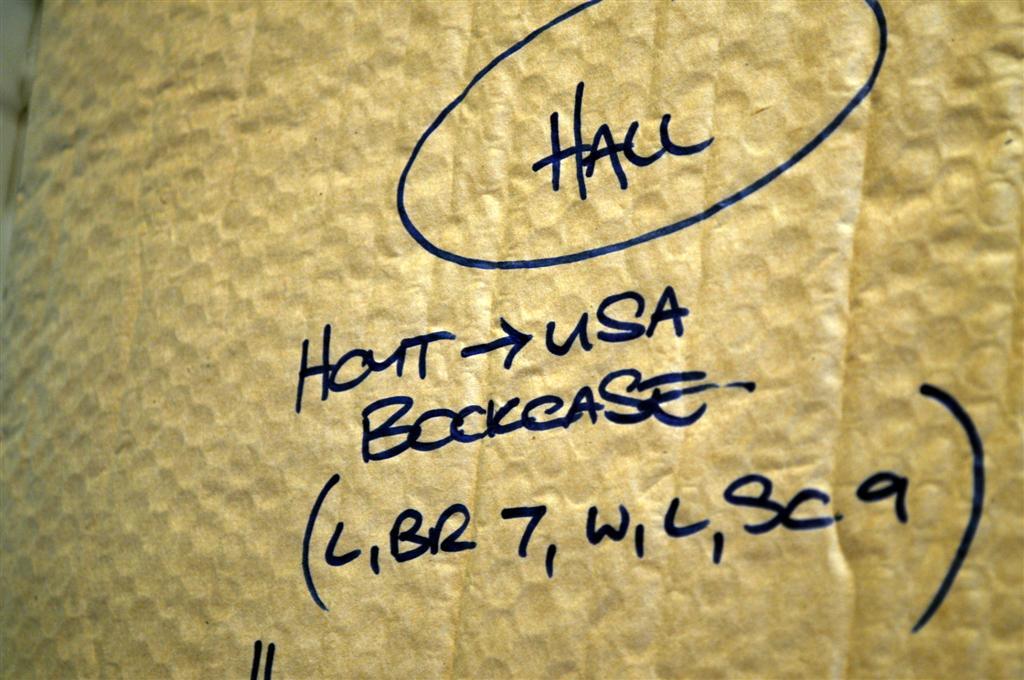 HALL
HOYT → USA
BOOKCASE
(L, BR 7, W, L, SC 9)